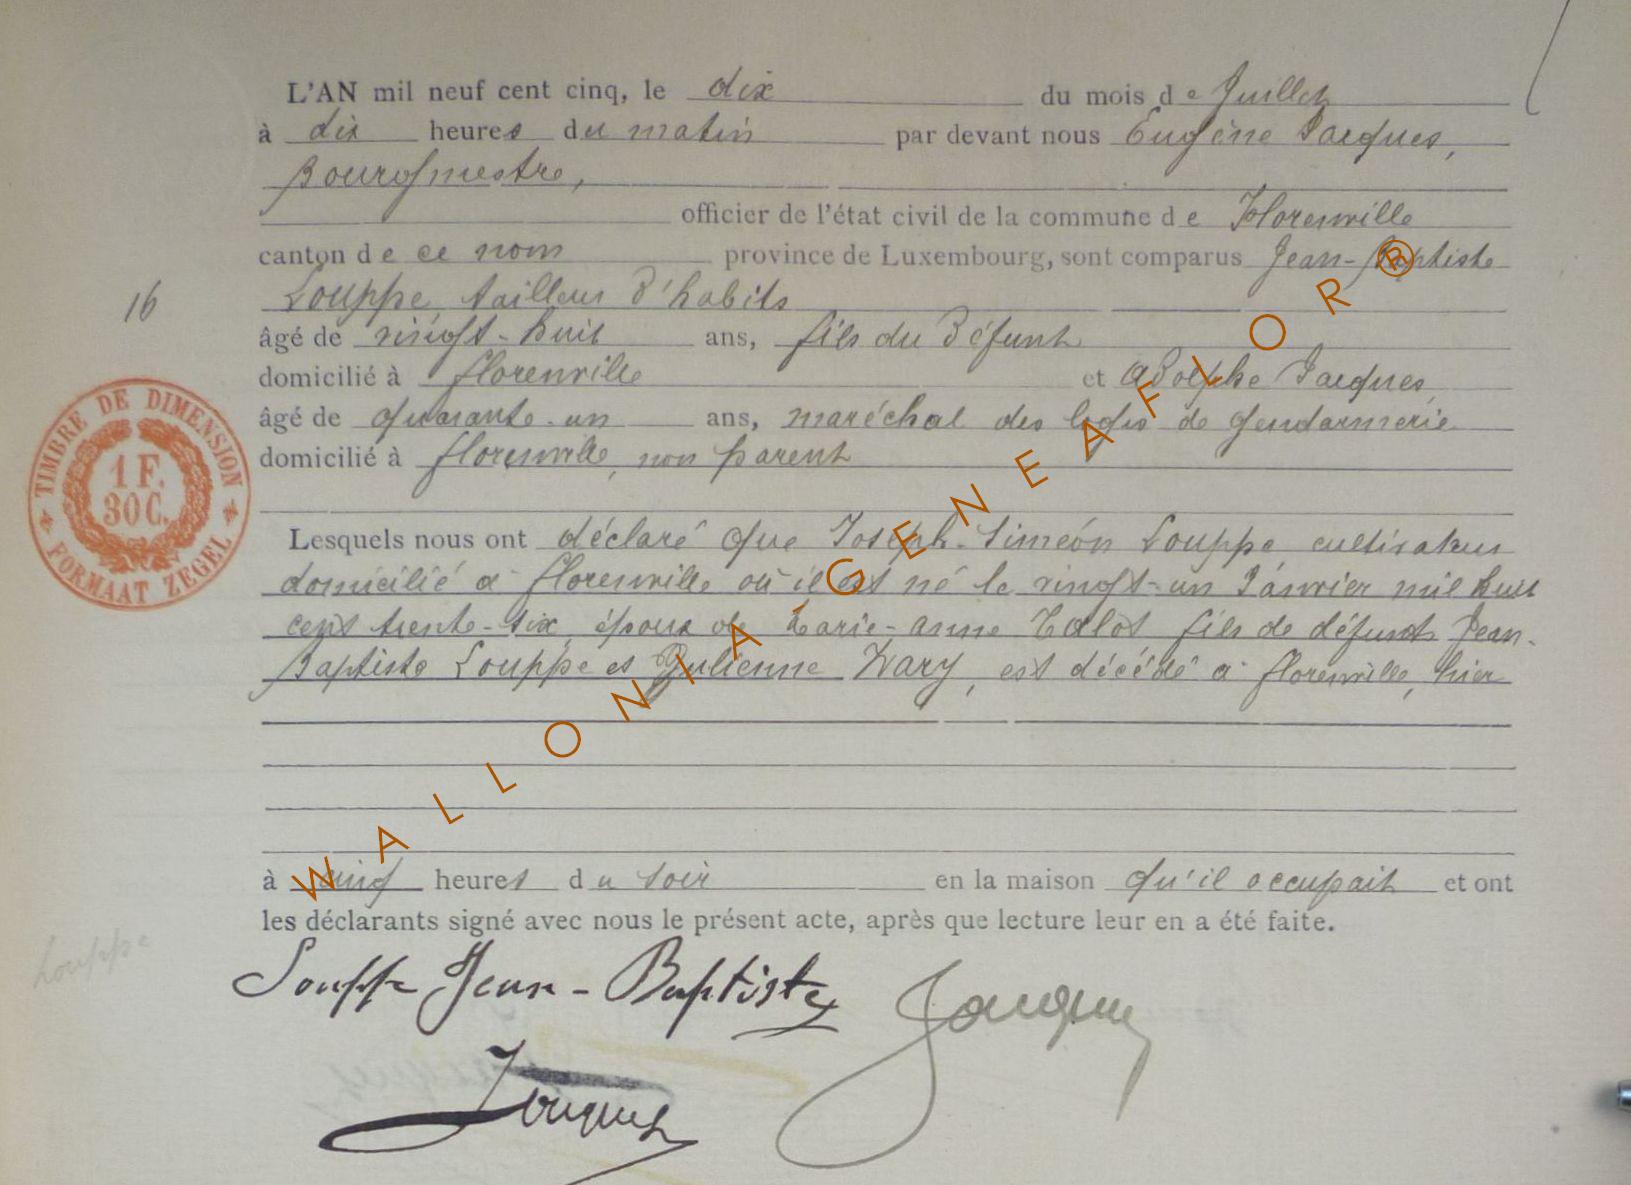 L'AN mil neuf cent cinq, le dix du mois de Juillet
à dix heures du matin par devant nous Eugène Jacques,
Bourgmestre,
officier de l'état civil de la commune de Florenville
canton de ce nom province de Luxembourg, sont comparus Jean-Baptiste
Louppe, tailleur d'habits
16
âgé de vingt-huit ans, fils du défunt
domicilié à florenville et Adolphe Jacques,
âgé de quarante-un ans, maréchal des logis de gendarmerie
domicilié à florenville, non parent
TIMBRE DE DIMENSION
1 F.
30 C.
FORMAAT ZEGEL
Lesquels nous ont déclaré que Joseph-Siméon Louppe cultivateur
domicilié à florenville où il est né le vingt-un Janvier mil huit
cent trente-six, époux de Marie-Anne fils de défunts Jean-
Baptiste Louppe et Julienne Wary, est décédé à florenville, hier
à cinq heures du soir en la maison qu'il occupait et ont
les déclarants signé avec nous le présent acte, après que lecture leur en a été faite.
Louppe
Louppe Jean-Baptiste Jacques
Jacques
WALLONIA-GENEAFLOR®